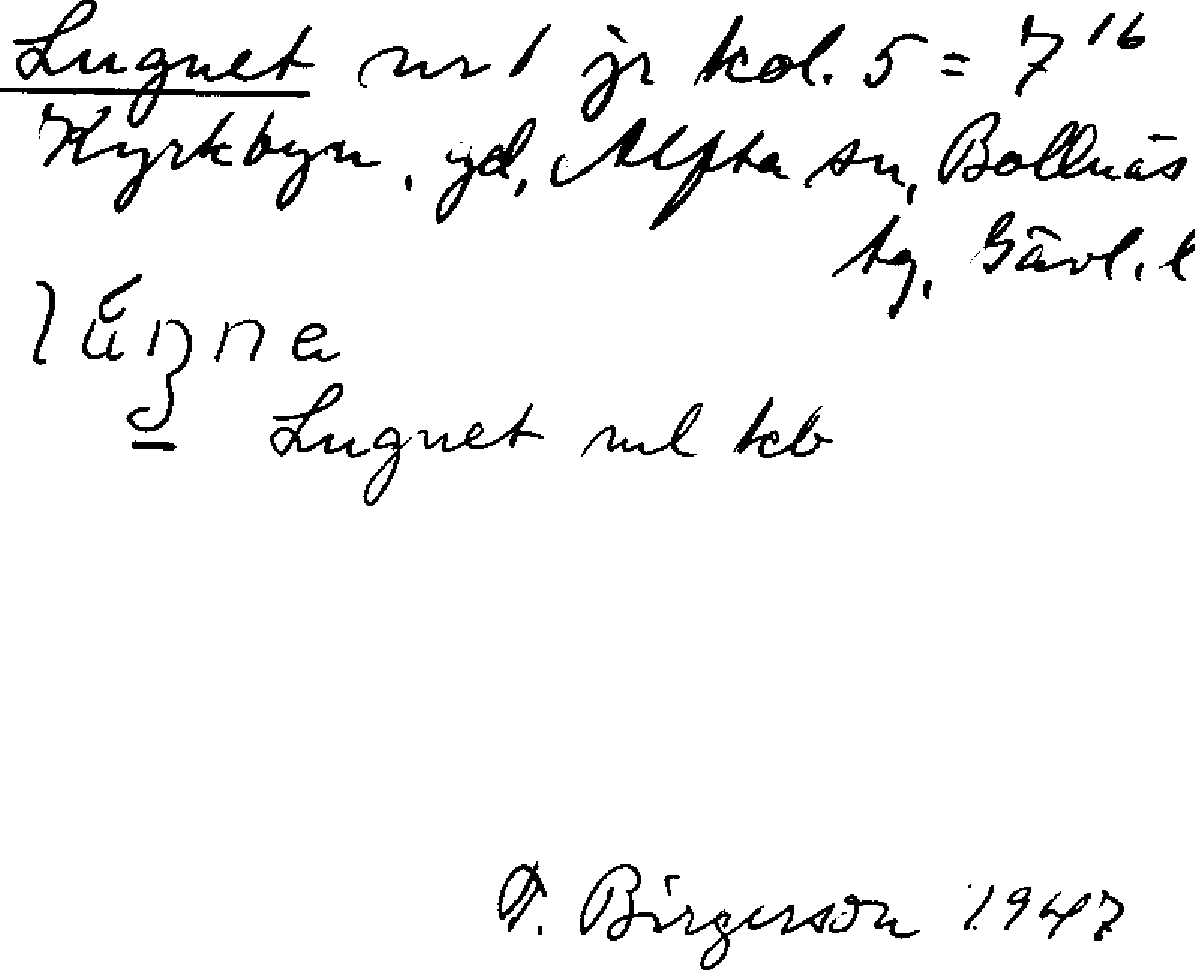 Lugnet nr 1 jr kol. 5 = 7 16
Kyrkbyn, gd, Alfta sn, Bollnäs
tg, Gävl. l
lúŋne
Lugnet ml kb
T. Birgerson 1947